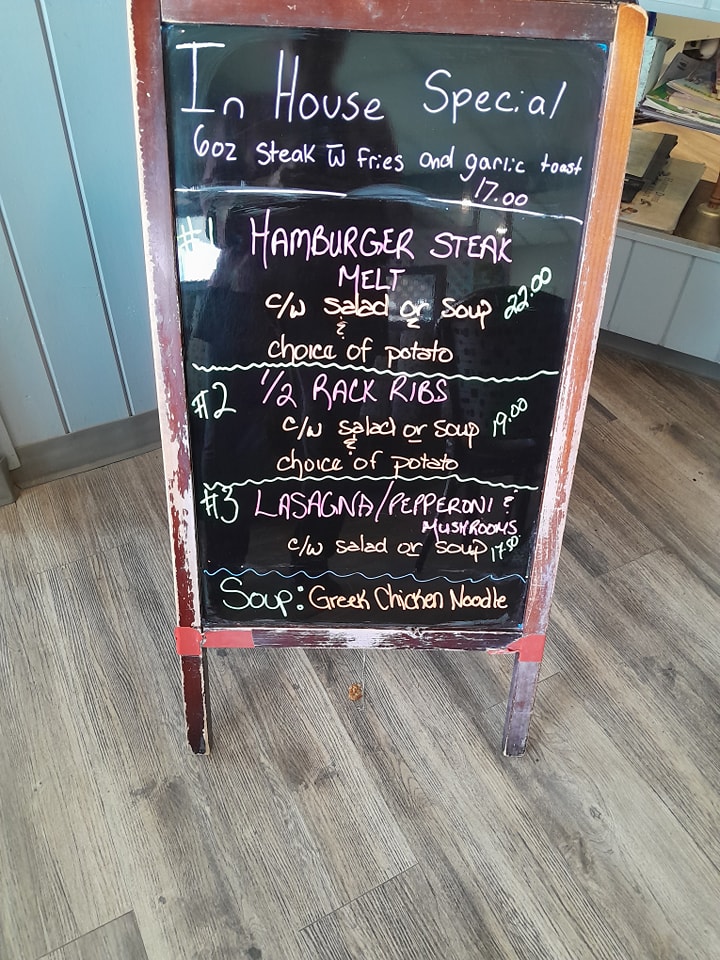 In House Special
6oz steak w̅ fries and garlic toast
17.00
#1 HAMBURGER STEAK
MELT
c/w salad or soup 22.00
&
choice of potato
#2 1/2 RACK RIBS
c/w salad or soup 19.00
&
choice of potato
#3 LASAGNA/PEPPERONI &
MUSHROOMS
c/w salad or soup 17.50
Soup: Greek Chicken Noodle